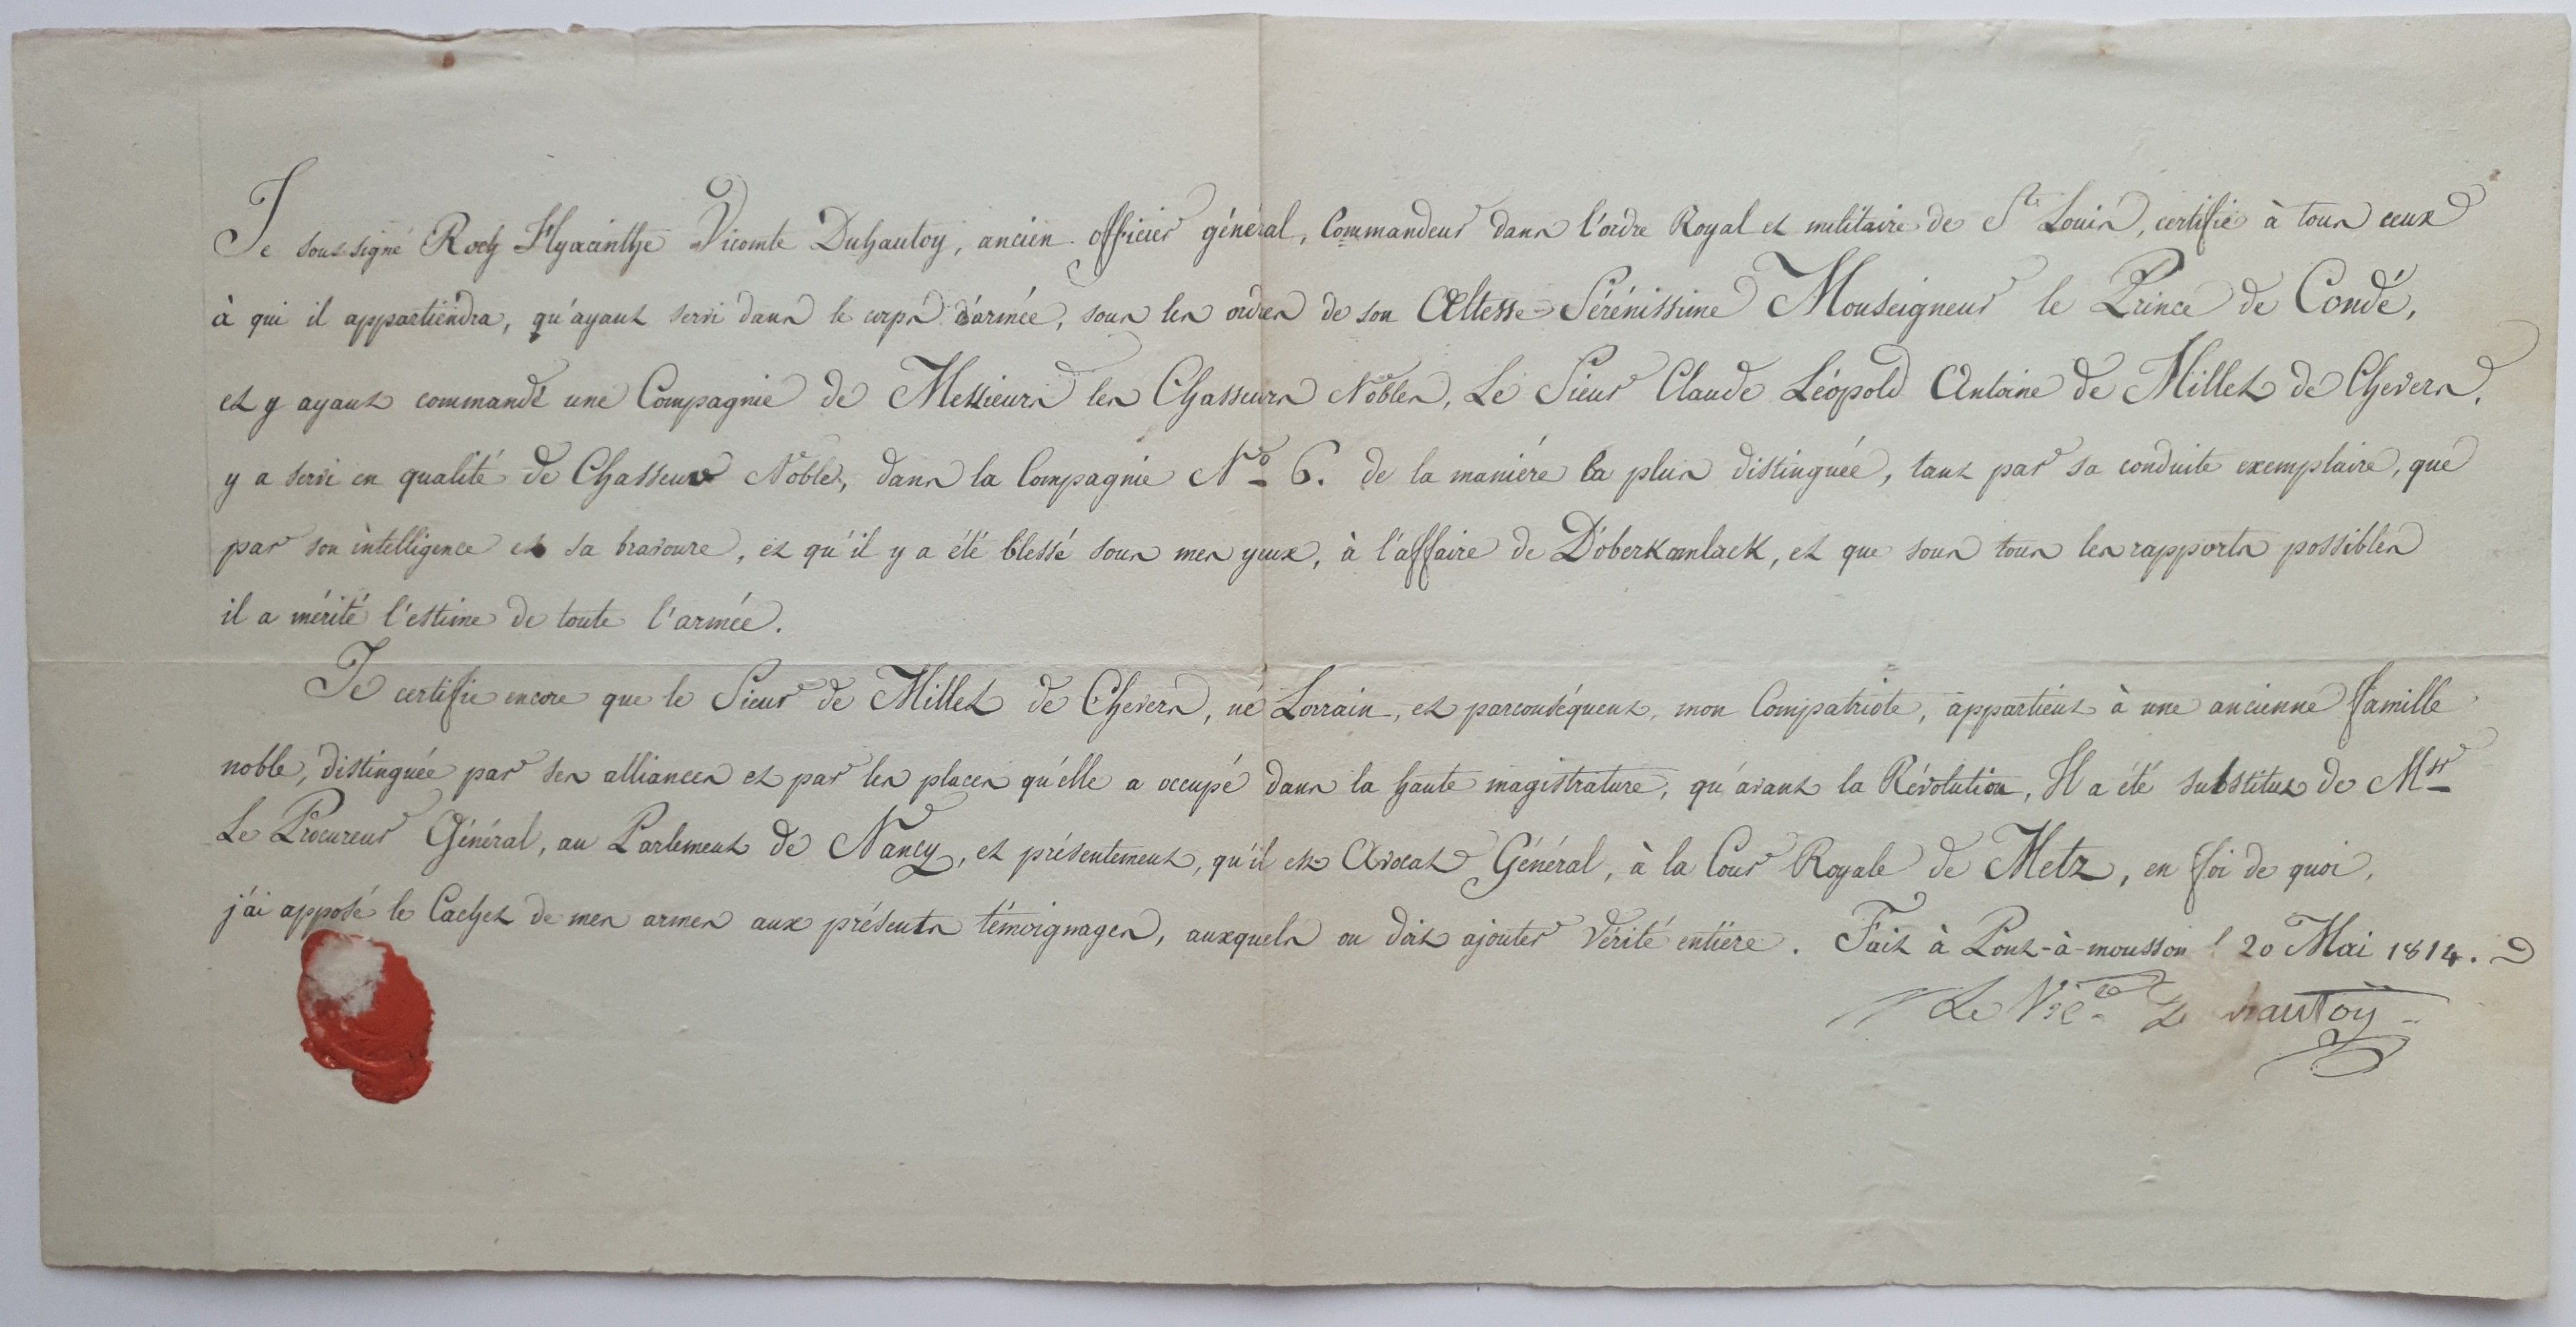 Je sous-signé Roch Hyacinthe Vicomte Duhautoy, ancien officier général, Commandeur dans l'ordre Royal et militaire de St Louis, certifie à tous ceux
à qui il appartiendra, qu'ayant servi dans le corps d'armée, sous les ordres de son Altesse-Sérénissime Monseigneur le Prince de Condé,
et y ayant commandé une Compagnie de Messieurs les Chasseurs Nobles, Le Sieur Claude Léopold Antoine de Millet de Chevers,
y a servi en qualité de Chasseur Noble, dans la Compagnie No 6. de la maniére la plus distinguée, tant par sa conduite exemplaire, que
par son intelligence et sa bravoure, et qu'il y a été blessé sous mes yeux, à l'affaire de D'oberkamlack, et que sous tous les rapports possibles
il a mérité l'estime de toute l'armée.
Je certifie encore que le Sieur de Millet de Chevers, né Lorrain, et parconséquent, mon Compatriote, appartient à une ancienne famille
noble, distinguée par ses alliances et par les places qu'elle a occupé dans la haute magistrature, qu'avant la Révolution, Il a été substitut de Mr
Le Procureur Général, au Parlement de Nancy, et présentement, qu'il est Avocat Général, à la Cour Royale de Metz, en foi de quoi,
j'ai apposé le Cachet de mes armes aux présents témoignages, auxquels on doit ajouter Vérité entière. Fait à Pont-à-mousson 20 Mai 1814.
Le Victe De hautoy